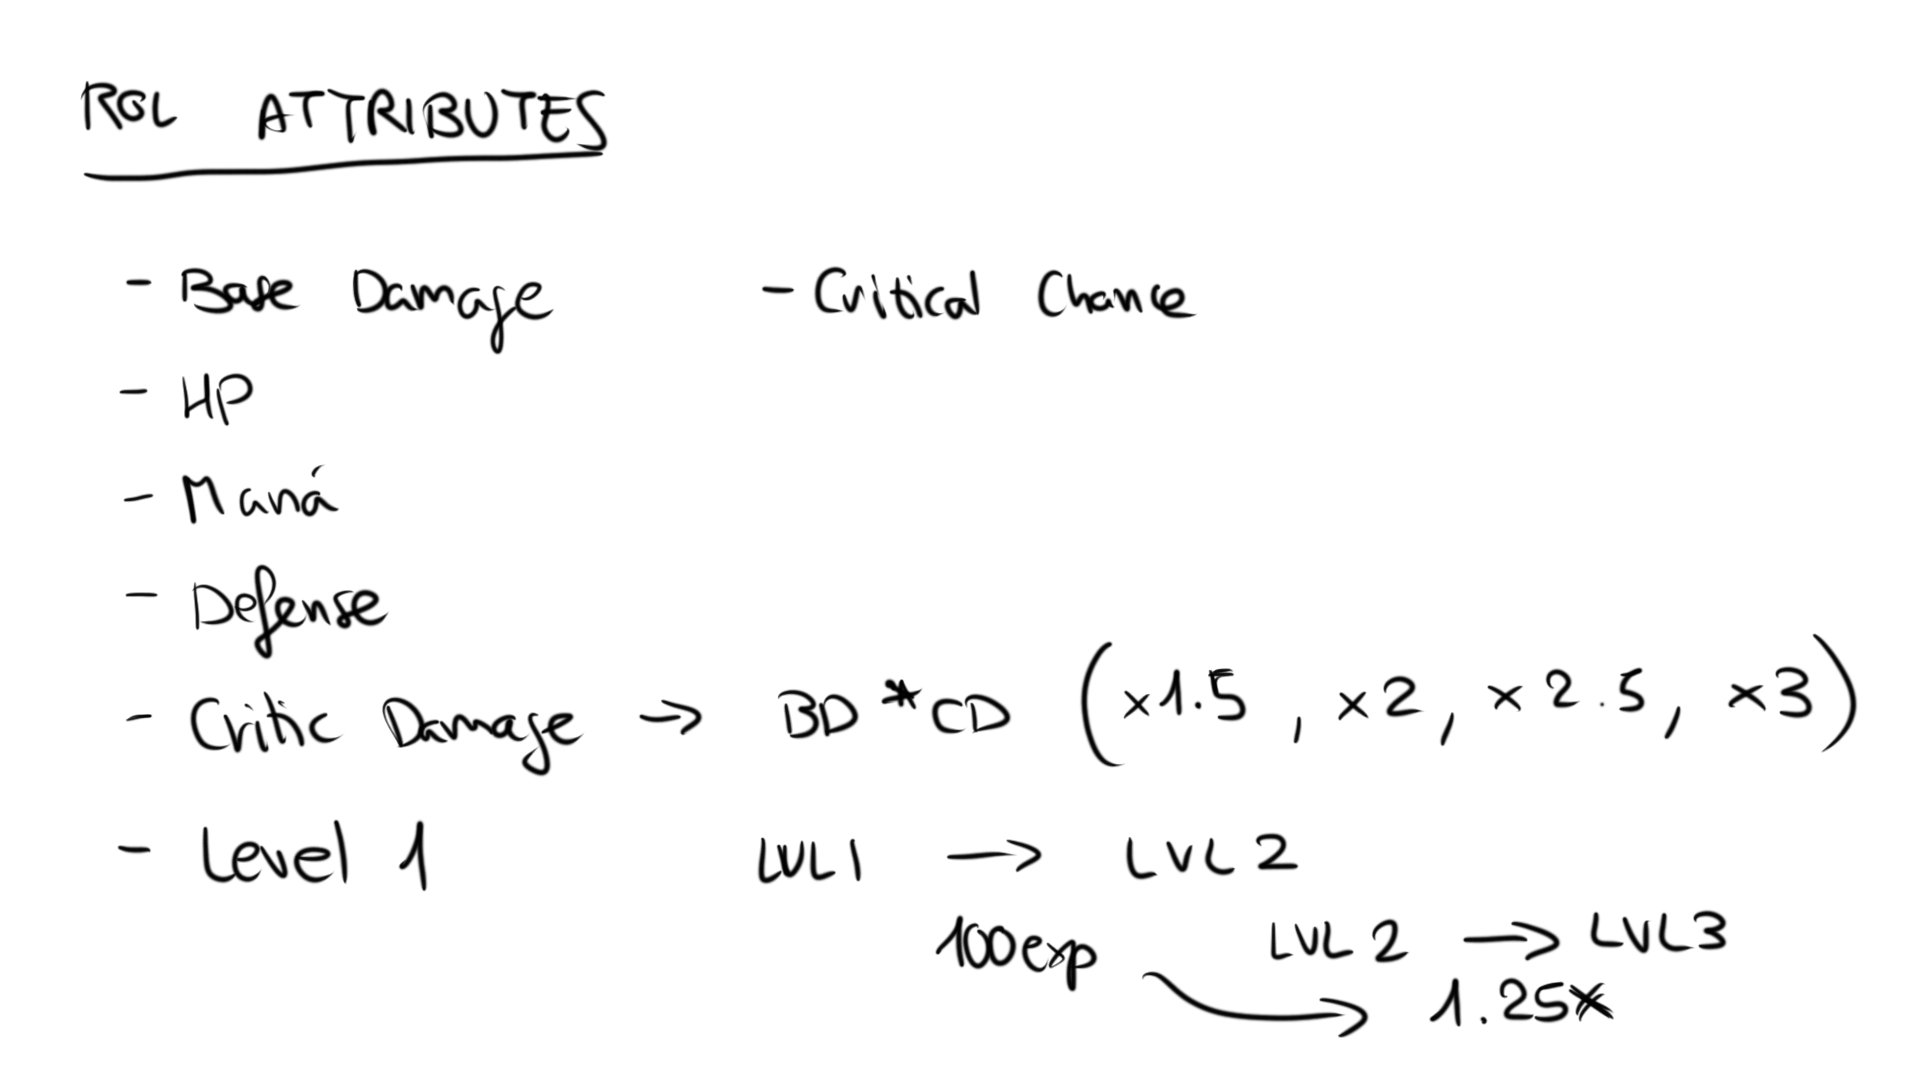 ROL ATTRIBUTES
- Base Damage - Critical Chance
- HP
- Maná
- Defense
- Critic Damage → BD * CD (x1.5, x2, x2.5, x3)
- Level 1 LVL1 → LVL2
100exp LVL2 → LVL3
→ 1.25*